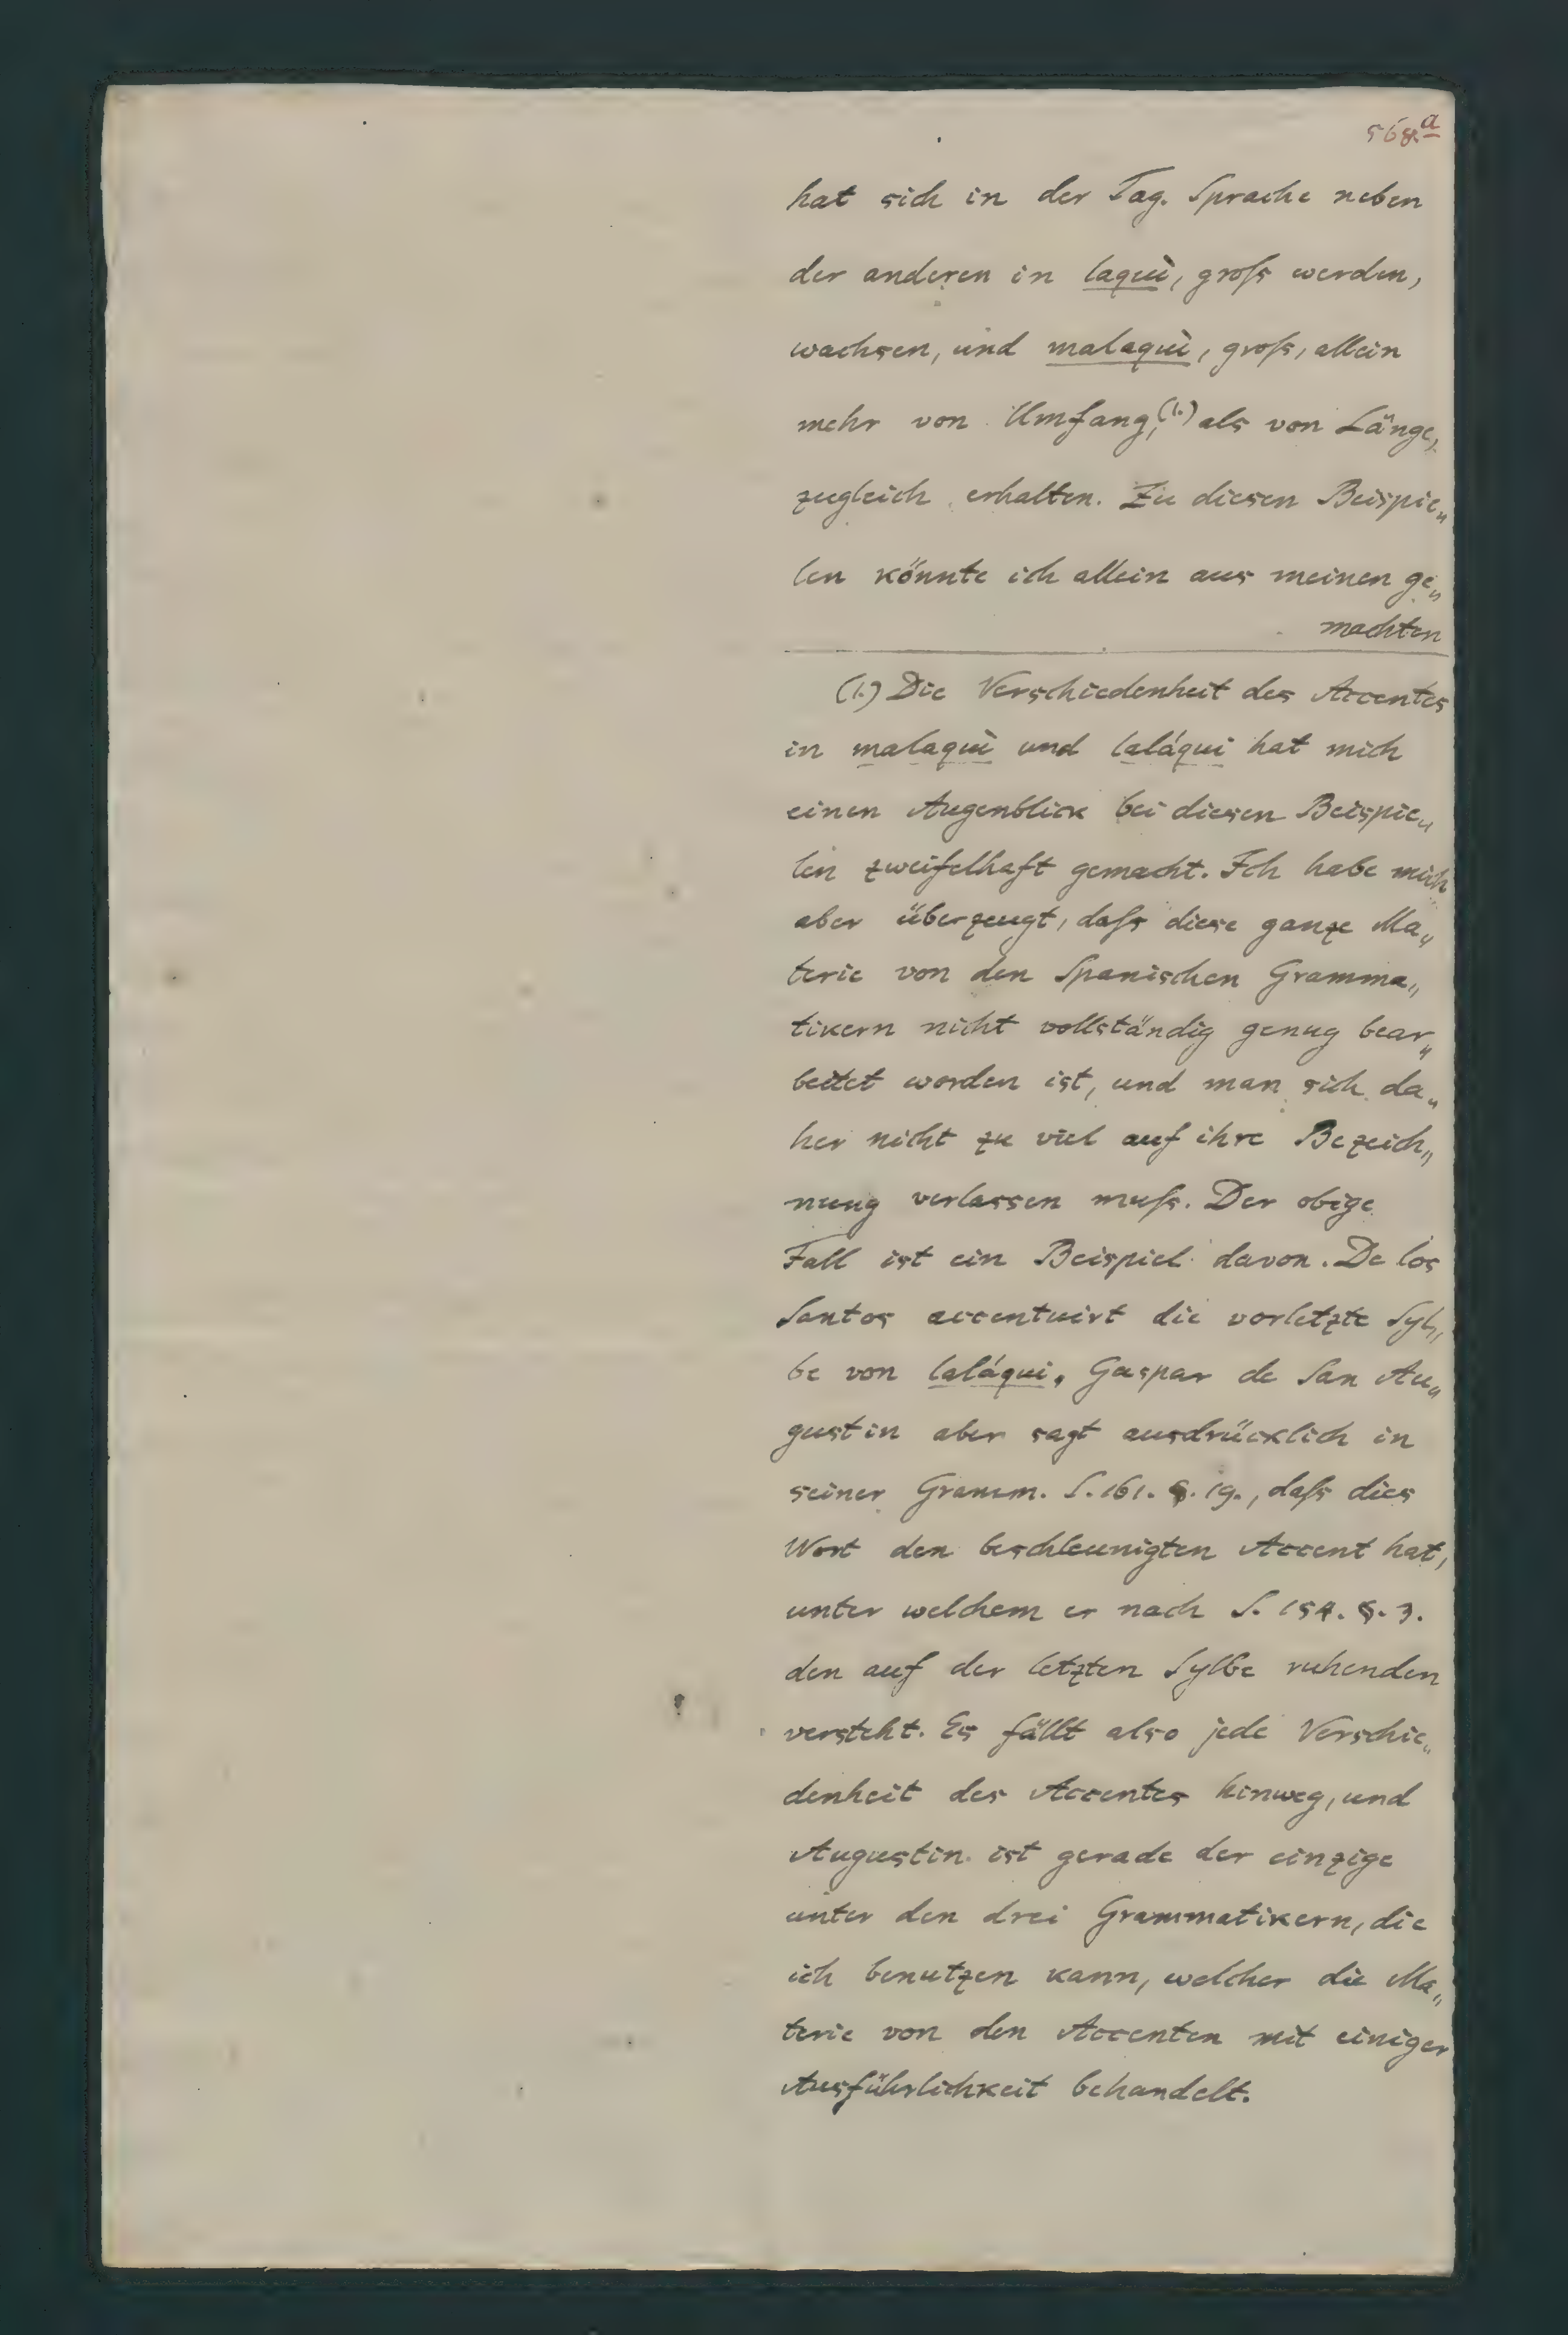 568.a
hat sich in der Tag. Sprache neben
der anderen in laquì, groſs werden,
wachsen, und malaquì, groſs, allein
mehr von Umfang,(1.) als von Länge,
zugleich erhalten. Zu diesen Beispie„
len könnte ich allein aus meinen ge„
machten
(1.) Die Verschiedenheit des Accentes
in malaquì und laláqui hat mich
einen Augenblick bei diesen Beispie„
len zweifelhaft gemacht. Ich habe mich
aber überzeugt, daſs diese ganze Ma„
terie von den Spanischen Gramma„
tikern nicht vollständig genug bear„
beitet worden ist, und man sich da„
her nicht zu viel auf ihre Bezeich„
nung verlassen muſs. Der obige
Fall ist ein Beispiel davon. De los
Santos accentuirt die vorletzte Syl„
be von laláqui. Gaspar de San Au„
gustin aber sagt ausdrücklich in
seiner Gramm. S. 161. §. 19., daſs dies
Wort den beschleunigten Accent hat,
unter welchem er nach S. 154. §. 3.
den auf der letzten Sylbe ruhenden
versteht. Es fällt also jede Verschie„
denheit des Accentes hinweg, und
Augustin ist gerade der einzige
unter den drei Grammatikern, die
ich benutzen kann, welcher die Ma„
terie von den Accenten mit einiger
Ausführlichkeit behandelt.